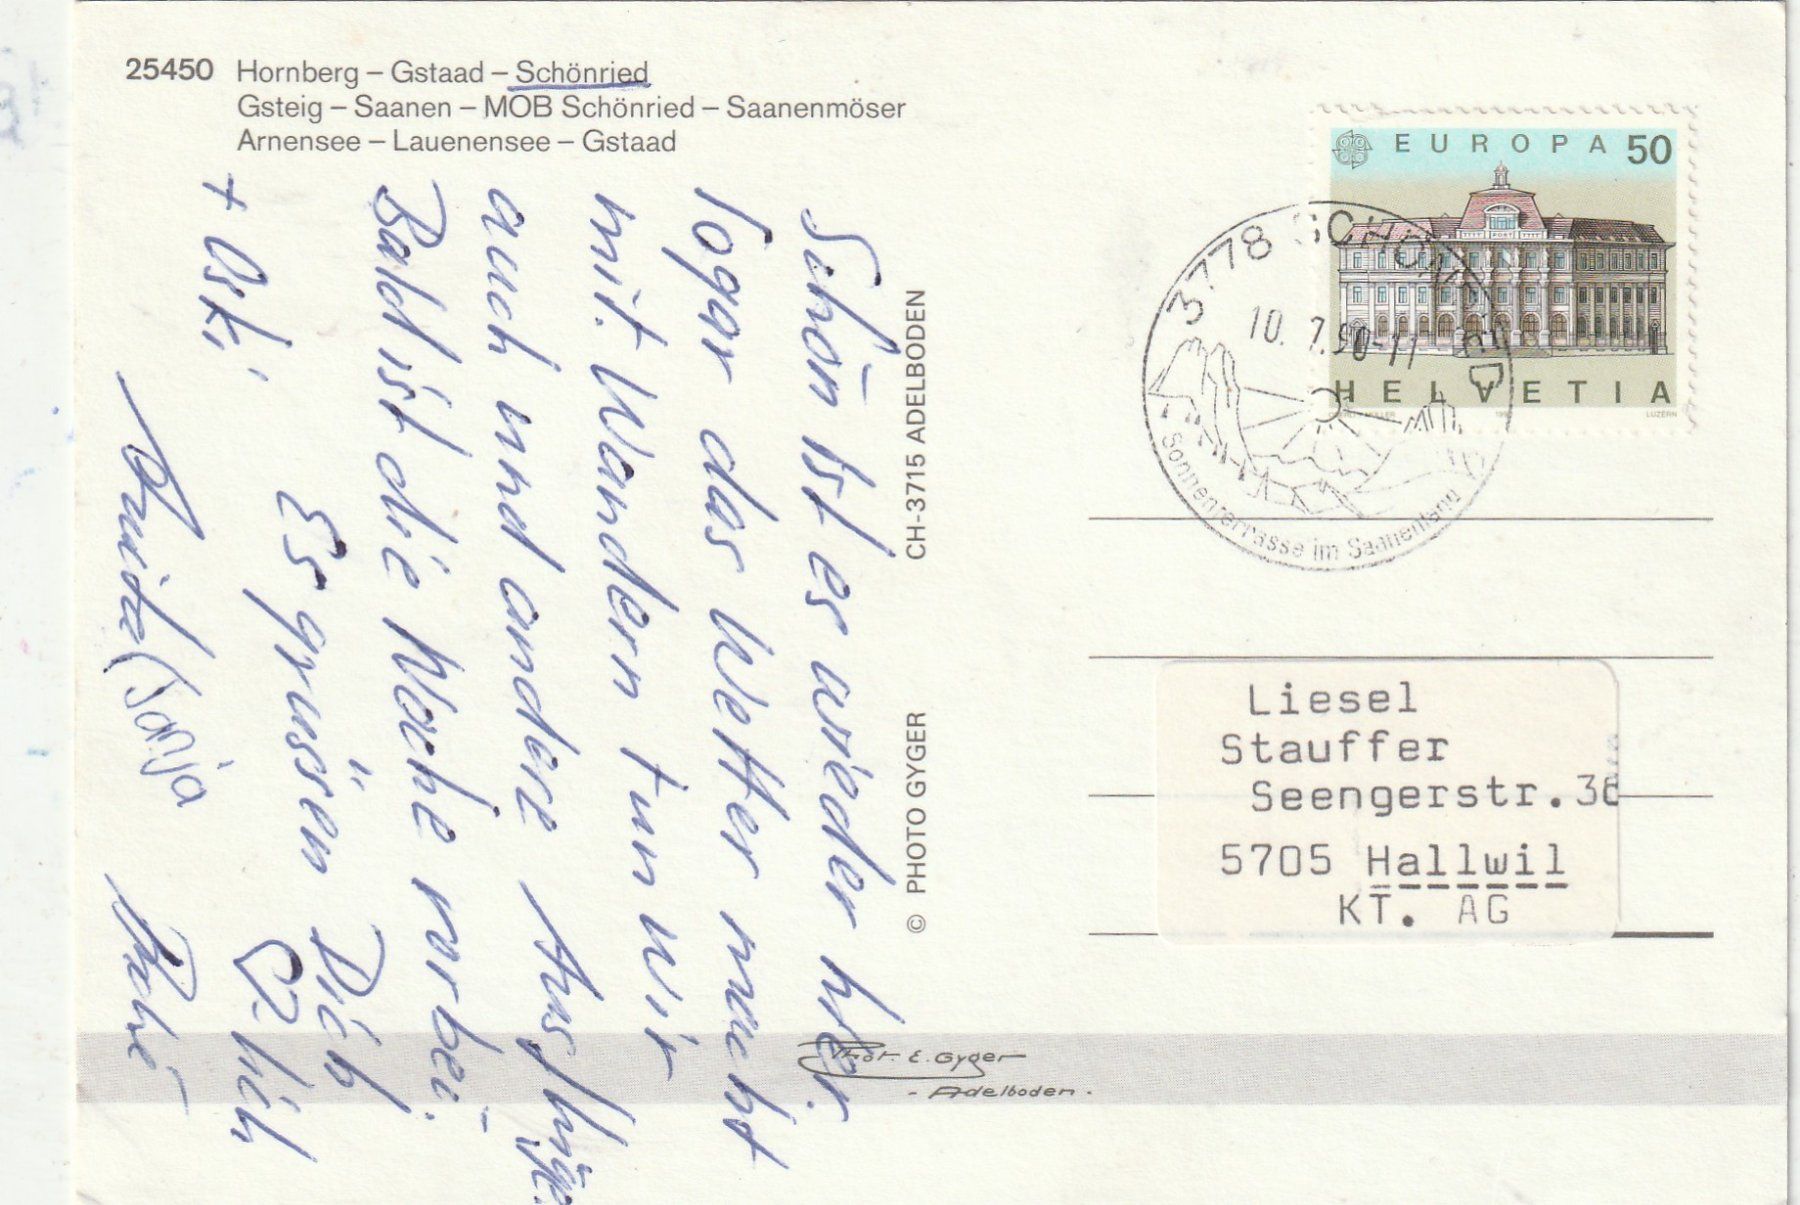 25450 Hornberg – Gstaad – Schönried
Gsteig – Saanen – MOB Schönried – Saanenmöser
Arnensee – Lauenensee – Gstaad
Schön ist es wieder hier.
Sogar das Wetter macht
mit. Wandern tun wir
auch und andere Ausflüge.
Bald ist die Woche vorbei.
Es grüssen Dich
♡-lich
+ Oski
Sonja
© PHOTO GYGER CH-3715 ADELBODEN
Phot. E. Gyger
- Adelboden -
EUROPA 50
POST
HELVETIA
MÜLLER
LUZERN
3778 SCHÖNRIED
10. 7. 90-11
Sonnenterrasse im Saanenland
Liesel
Stauffer
Seengerstr.36
5705 Hallwil
KT. AG